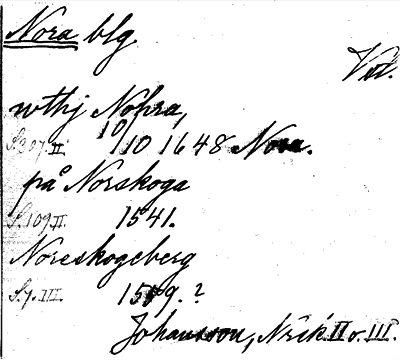 Nora blg.
Vut.
uthj Nohra,
S. 307. II. 10/10 1648 Nora.
på Norskoga
S. 109. II. 1541.
Noreskogeberg
S. 7. III. 1559. ?
Johansson, Närik. II o. III.